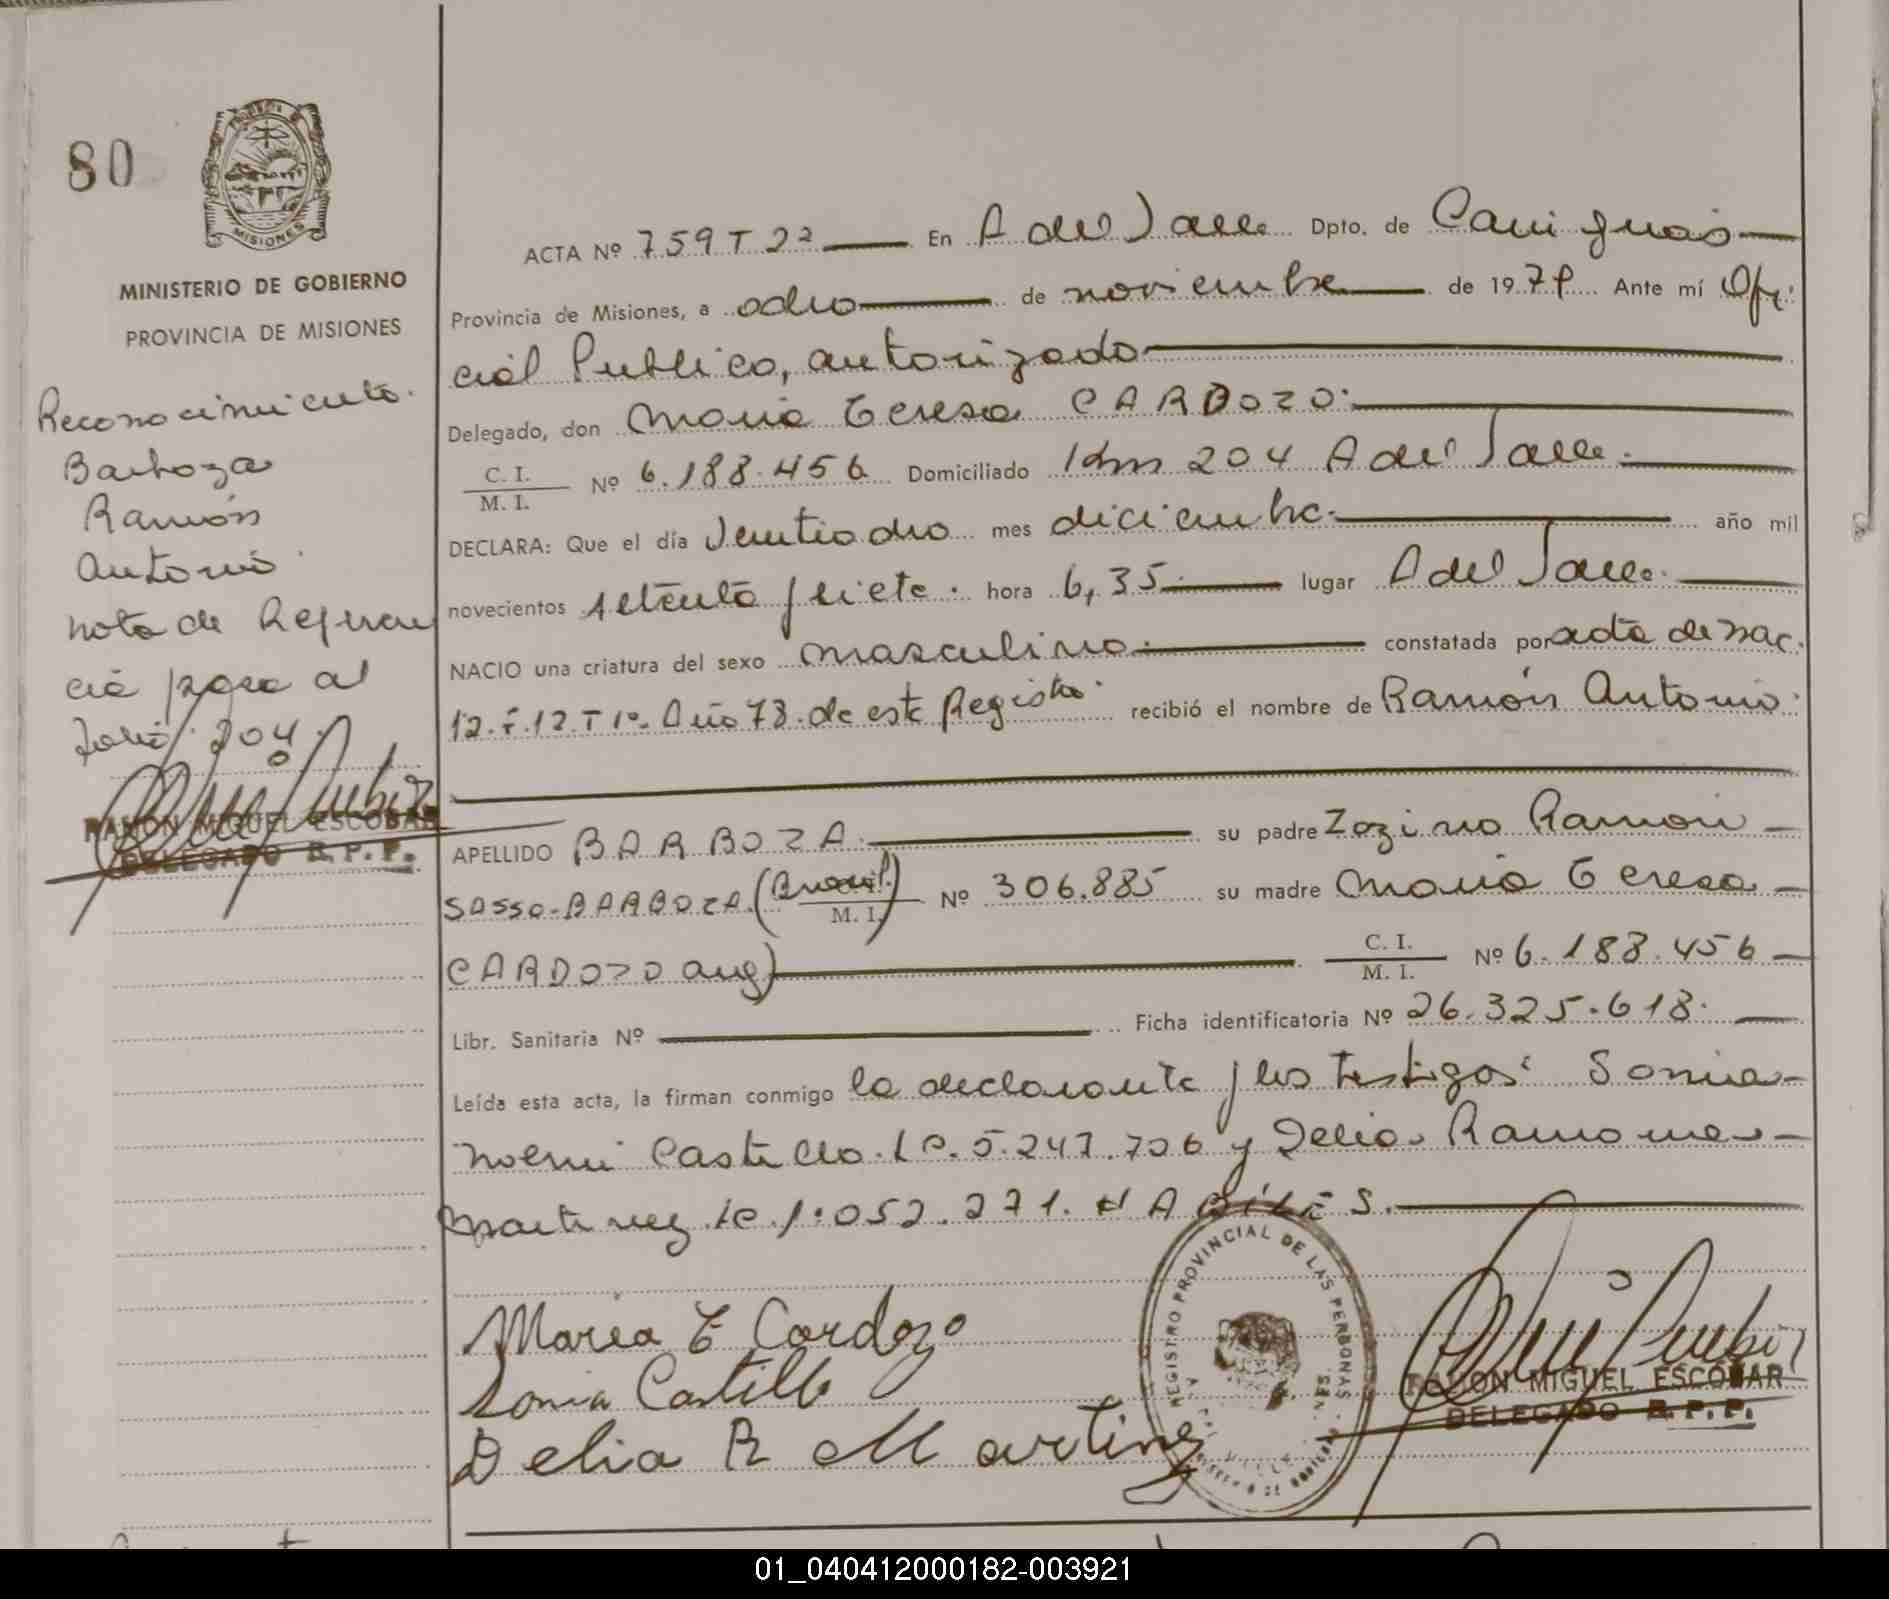 80
MISIONES
MINISTERIO DE GOBIERNO
PROVINCIA DE MISIONES
Reconocimiento.
Barboza
Ramón
Antonio.
nota de Referen
cia pasa al
folio 204.
RAMON MIGUEL ESCOBAR
DELEGADO R.P.P.
ACTA Nº 759 T 2º En A del Valle Dpto. de Cainguás
Provincia de Misiones, a ocho de noviembre de 1979 Ante mí Ofi
cial Publico, autorizado
Delegado, don Maria Teresa CARDOZO.
C. I.
M. I. Nº 6.188.456 Domiciliado Km 204 A del Valle.
DECLARA: Que el día Veintiocho mes diciembre. año mil
novecientos setenta y siete. hora 6,35 lugar A del Valle.
NACIO una criatura del sexo masculino. constatada por acta de nac.
12.F.12.T 1º. Año 78. de este Registro. recibió el nombre de Ramón Antonio.
APELLIDO BARBOZA. su padre Zozimo Ramon
SASSO-BARBOZA. (Brasil.) M. I. Nº 306.885 su madre Maria Teresa
CARDOZO arg) C. I.
M. I. Nº 6.188.456
Libr. Sanitaria Nº Ficha identificatoria Nº 26.325.618.
Leída esta acta, la firman conmigo la declarante y los testigos: Sonia
Noemi Castillo. LC. 5.247.706 y Delia Ramona
Martinez LC. 1.052.271. HABILES.
Maria T Cardozo
Sonia Castillo
Delia R Martinez
REGISTRO PROVINCIAL DE LAS PERSONAS
RAMON MIGUEL ESCOBAR
DELEGADO R.P.P.
01_040412000182-003921